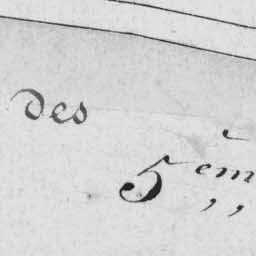 des
5 èm